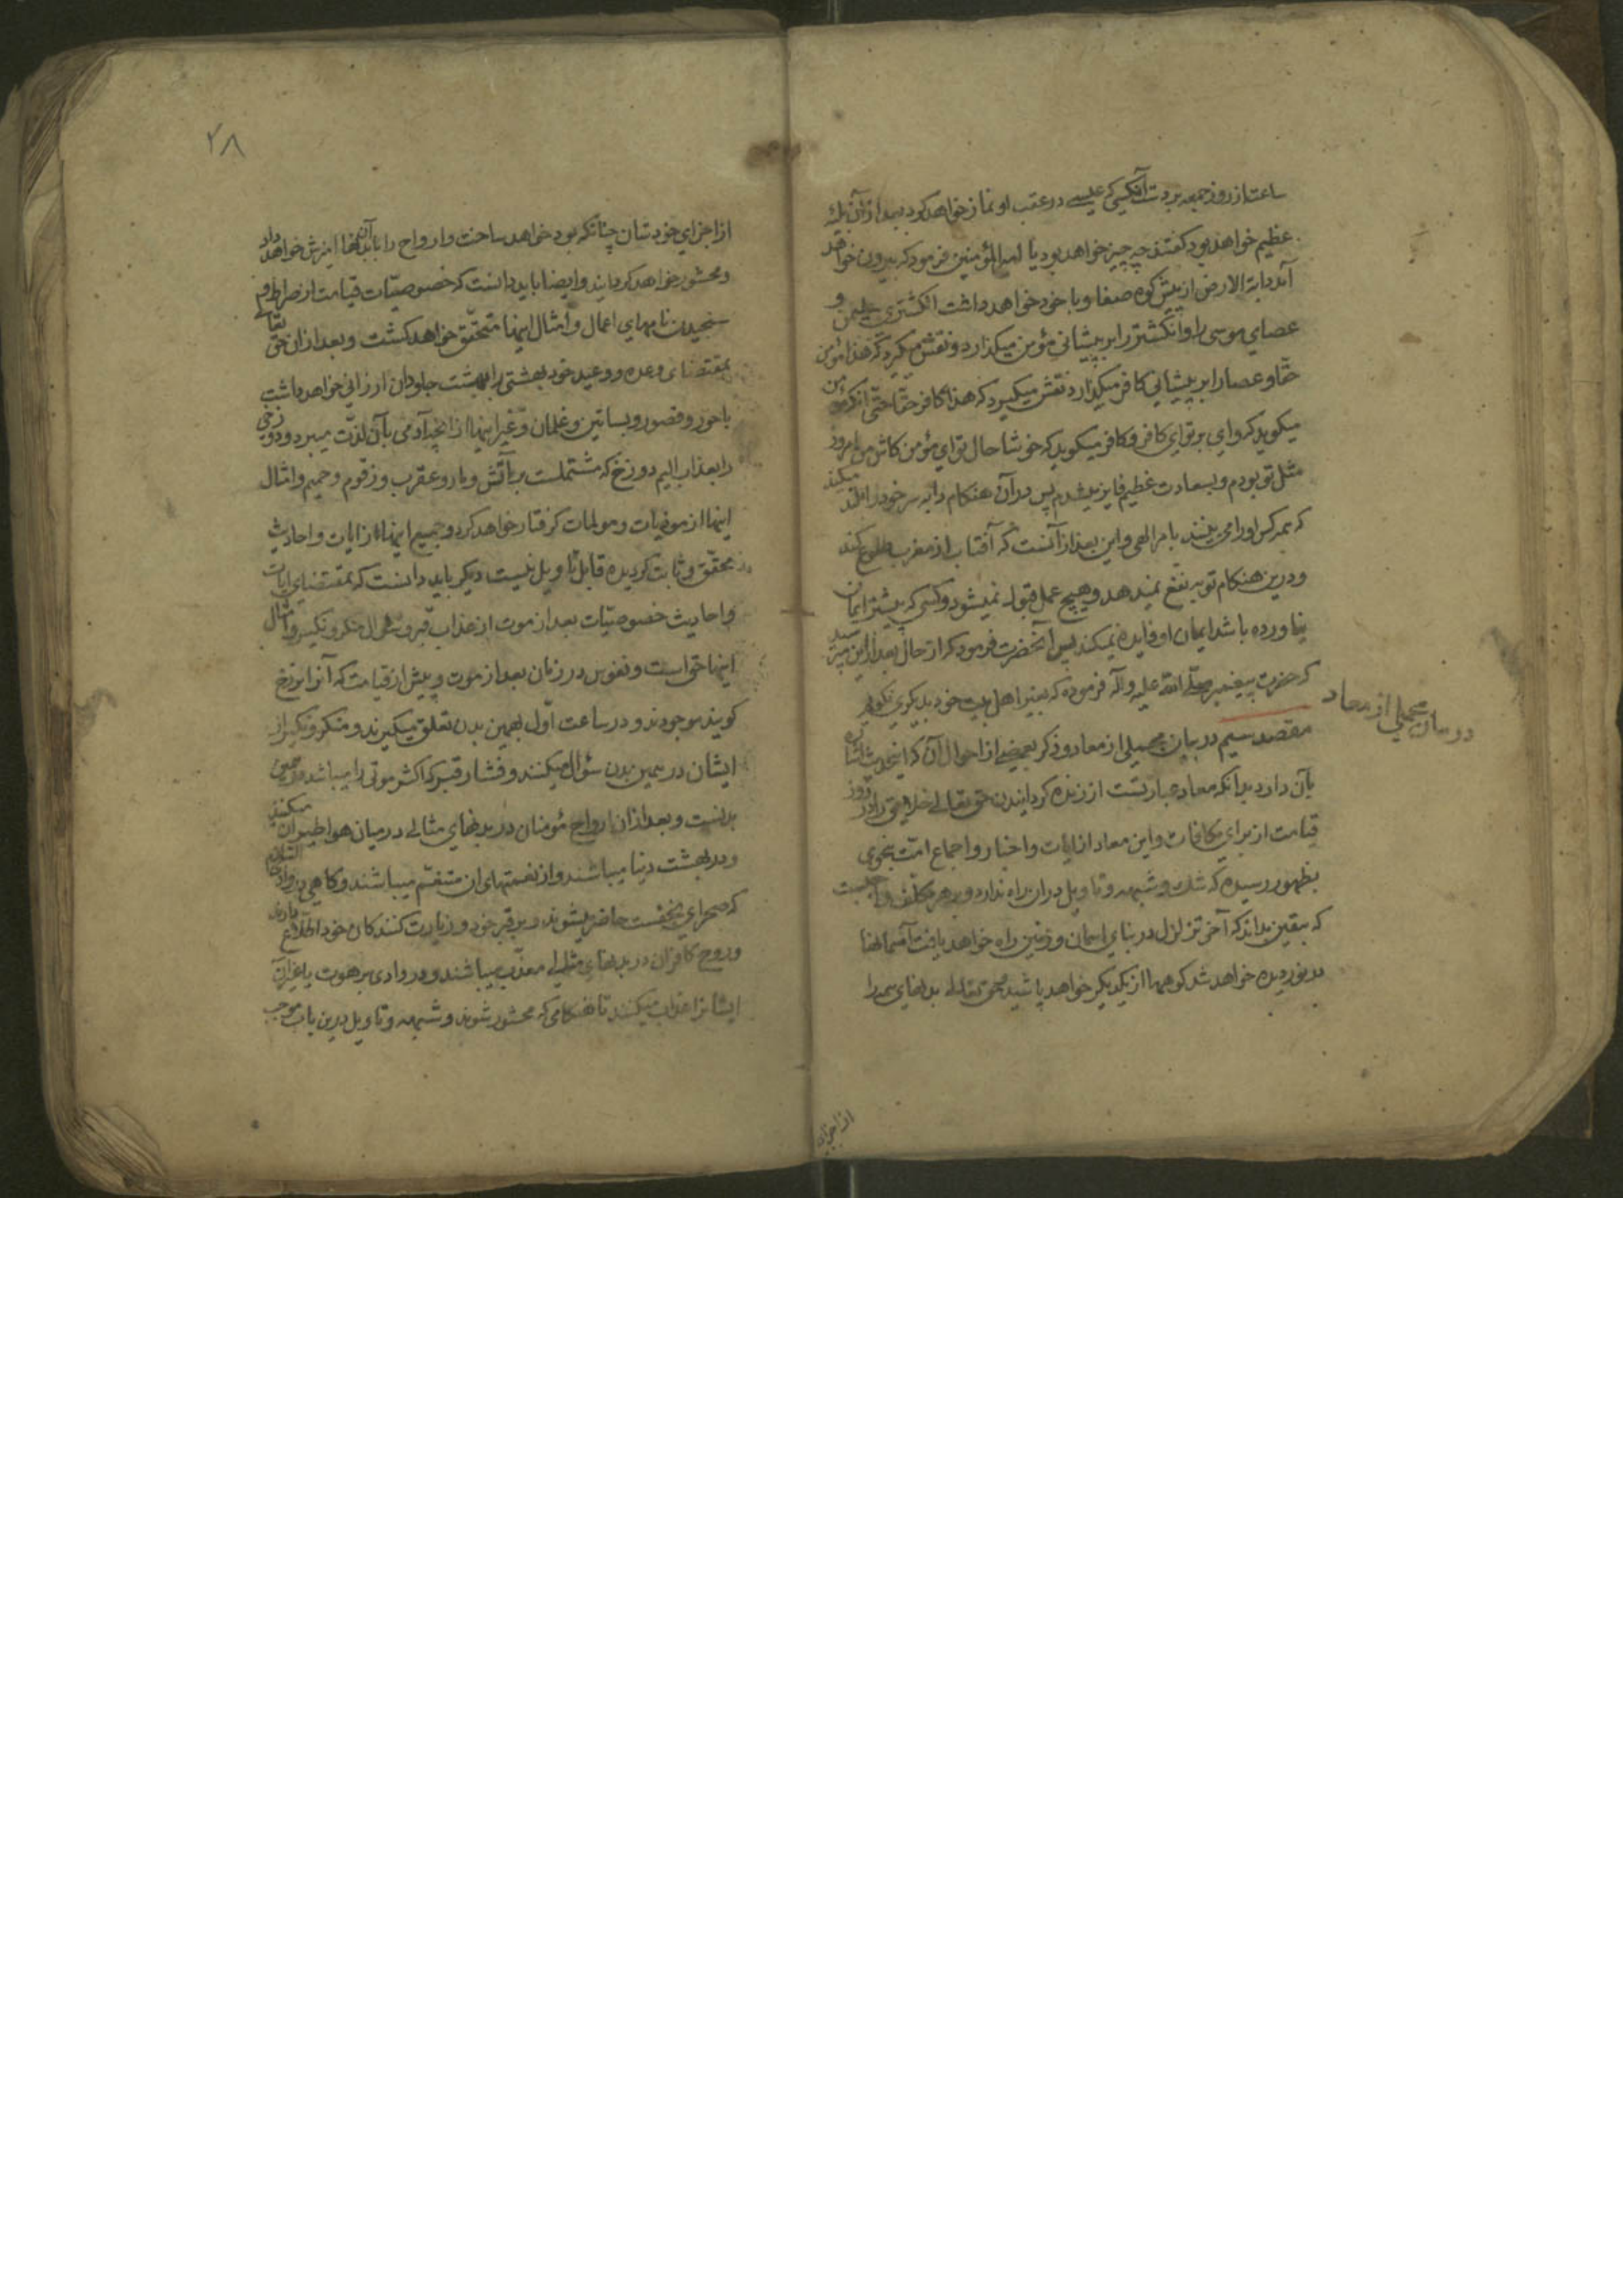 ساعت از روز جمعه بر دست آنکسی که عیسی در عقب او نماز خواهد کرد بعد از آن بلیهٔ
عظیم خواهد بود کفتند چه چیز خواهد بود یا امیر المؤمنین فرمود که بیرون خواهد
آمد دابة الارض از پیش کوه صفا و با خود خواهد داشت انکشتری سلیمن و
عصای موسی را و انکشتر را بر پیشانی مؤمن میکذارد و نقش میکیرد که هذا مؤمن
حقا و عصا را بر پیشانی کافر میکذارد نقش میکیرد که هذا کافر حقا حتی آنکه مؤمن
میکوید که وای بر تو ای کافر و کافر میکوید که خوشا حال تو ای مؤمن کاش من امروز
مثل تو بودم و بسعادت عظیم فایز میشدم پس در آن هنکام دابه سر خود را بلند میکند
که همه کس او را می بینند بامر الهی و این بعد از آنست که آفتاب از مغرب طلوع کند
و درین هنکام توبه نفع نمیدهد و هیچ عمل قبول نمیشود و کسی که پیشتر ایمان
نیاورده باشد ایمان او فایده نمیکند پس آنحضرت فرمود که از حال بعد ازین مپرسید
که حضرت پیغمبر صلی الله علیه و آله فرموده که بغیر اهل بیت خود بدیکری نکویم
مقصد سیم در بیان مجملی از معاد و ذکر بعضی از احوال آن که اینحدیث اشاره
بآن دارد بدانکه معاد عبارتست از زنده کردانیدن حق تعالی خلایق را در روز
قیامت از برای مکافات و این معاد از ایات و اخبار و اجماع امت بنحوی
بظهور رسیده که شک و شبهه و تاویل در ان راه ندارد و بر هر مکلف واجبست
که بیقین بداند که آخر تزلزل در بنای اسمان و زمین راه خواهد یافت آسمانها
در نوردیده خواهد شد کوهها از یکدیکر خواهد پاشید حق تعالی بدنهای همه را
در بیان مجملی از معاد
از اجزای
۲۸
از اجزای خودشان چنانکه بود خواهد ساخت و ارواح را با آن بدنها امیزش خواهد داد
و محشور خواهد کردانید و ایضا باید دانست که خصوصیّات قیامت از صراط و
سنجیدن نامهای اعمال و أمثال اینها متحقّق خواهد کشت و بعد از ان حق تعالی
بمقتضای وعده و وعید خود بهشتی را ببهشت جاودان ارزانی خواهد داشت
با حور و قصور و بساتین و غلمان و غیر اینها از آنچه آدمی بآن لذّت میبرد و دوزخی
را بعذاب الیم دوزخ که مشتملست بر آتش و مار و عقرب و زقوم و حمیم و امثال
اینها از موذیات و مولمات کرفتار خواهد کرد و جمیع اینها از ایات و احادیث
محقّق و ثابت کردیده قابل تاویل نیست دیکر باید دانست که بمقتضای ایات
و احادیث خصوصیّات بعد از موت از عذاب قبر و سؤال منکر و نکیر و امثال
اینها حق است و نفوس در زمان بعد از موت و پیش از قیامت که آنرا برزخ
کویند موجودند و در ساعت اوّل بهمین بدن تعلق میکیرند و منکر و نکیر از
ایشان در همین بدن سؤال میکنند و فشار قبر که اکثر موتی را میباشد در همین
بدنست و بعد از ان ارواح مؤمنان در بدنهای مثالی در میان هوا طیران میکنند
و در بهشت دنیا میباشند و از نعمتهای ان متنعّم میباشند و کاهی در وادی السّلام
که صحرای نجفست حاضر میشوند و بر قبر خود و زیارت کنندکان خود اطّلاع دارند
و روح کافران در بدنهای مثالی معذّب میباشند و در وادی برهوت یا غیر آن
ایشانرا عذاب میکنند تا هنکامی که محشور شوند و شبهه و تاویل درین باب موجب